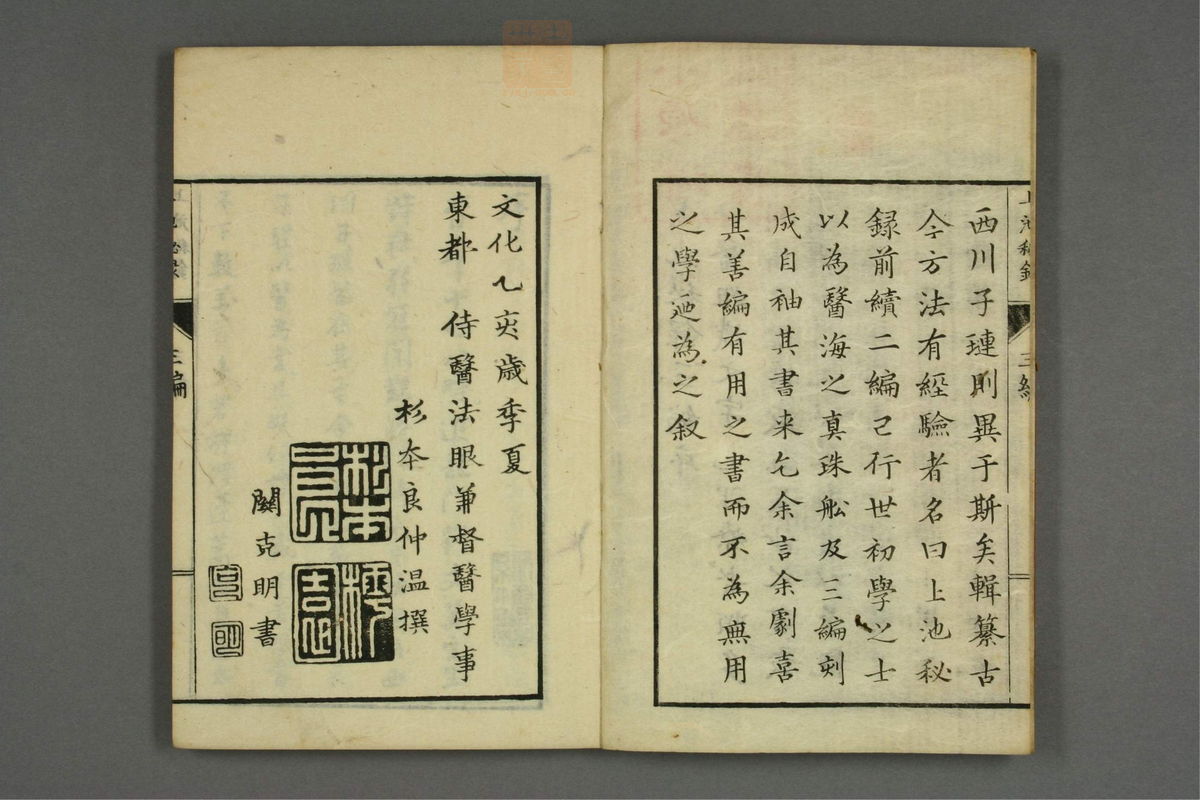 西川子璉則異于斯矣輯纂古
今方法有經驗者名曰上池秘
録前續二編已行世初學之士
以為醫海之真珠舩及三編刻
成自袖其書来乞余言余劇喜
其善編有用之書而不為無用
之學迺為之叙
文化乙亥歳季夏
東都 侍醫法眼兼督醫學事
杉本良仲温撰
關克明書
三編